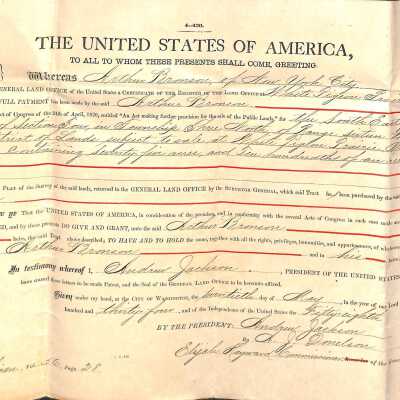 4—420.
THE UNITED STATES OF AMERICA,
TO ALL TO WHOM THESE PRESENTS SHALL COME, GREETING:
Whereas Arthur Bronson, of New York City
GENERAL LAND OFFICE of the United States a CERTIFICATE OF THE REGISTER OF THE LAND OFFICE at White Pigeon Prairie
FULL PAYMENT has been made by the said Arthur Bronson
Act of Congress of the 24th of April, 1820, entitled "An Act making further provision for the sale of the Public Lands," for the South
of Section four, in Township three North, of Range
of Lands subject to sale at White Pigeon Prairie
Containing seventy five acres, and ten hundredths of an acre
PLAT of the Survey of the said lands, returned to the GENERAL LAND OFFICE by the SURVEYOR GENERAL, which said Tract has been purchased by the
YE, That the UNITED STATES OF AMERICA, in consideration of the premises, and in conformity with the several Acts of Congress in such case made
and by these presents DO GIVE AND GRANT, unto the said Arthur Bronson
heirs, the said Tract above described, TO HAVE AND TO HOLD the same, together with all the rights, privileges, immunities, and appurtenances, of whatsoever
Arthur Bronson and to his
In testimony whereof I, Andrew Jackson, PRESIDENT OF THE UNITED STATES
have caused these letters to be made Patent, and the Seal of the GENERAL LAND OFFICE to be hereunto affixed.
Given under my hand, at the CITY OF WASHINGTON, the twentieth day of May, in the year of our Lord
hundred and thirty four, and of the Independence of the United States the Fifty eighth
BY THE PRESIDENT: Andrew Jackson
By A. J. Donelson
Elijah Hayward Commissioner of the
Page 28